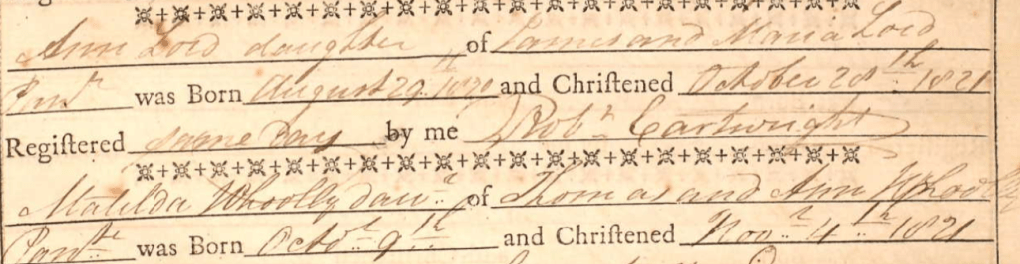 Ann Lord daughter of James and Maria Lord
was Born August 29th 1820 and Chriſtened October 28th 1821
Regiſtered same Day by me Robt Cartwright
Matilda Whoolly daur of Thomas and Ann
was Born Octor 9th and Chriſtened Novr 4th 1821